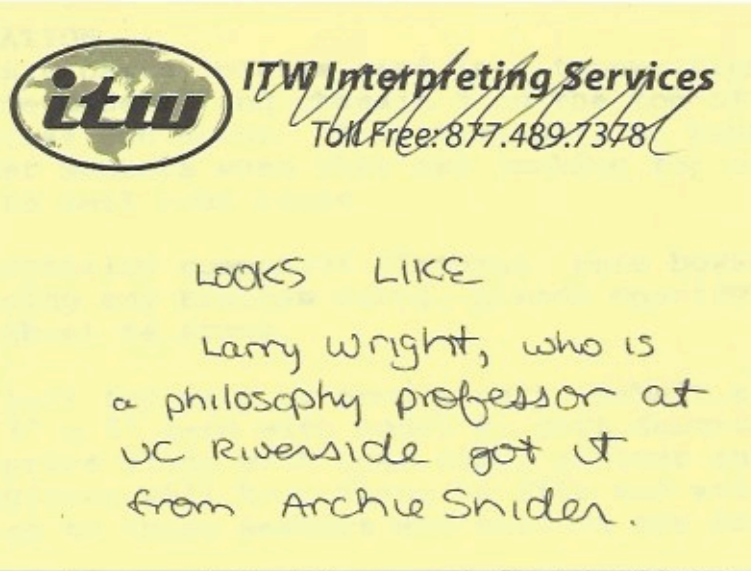 itw
ITW Interpreting Services
Toll Free: 877.489.7378
LOOKS LIKE
Larry Wright, who is
a philosophy professor at
UC Riverside got it
from Archie Snider.